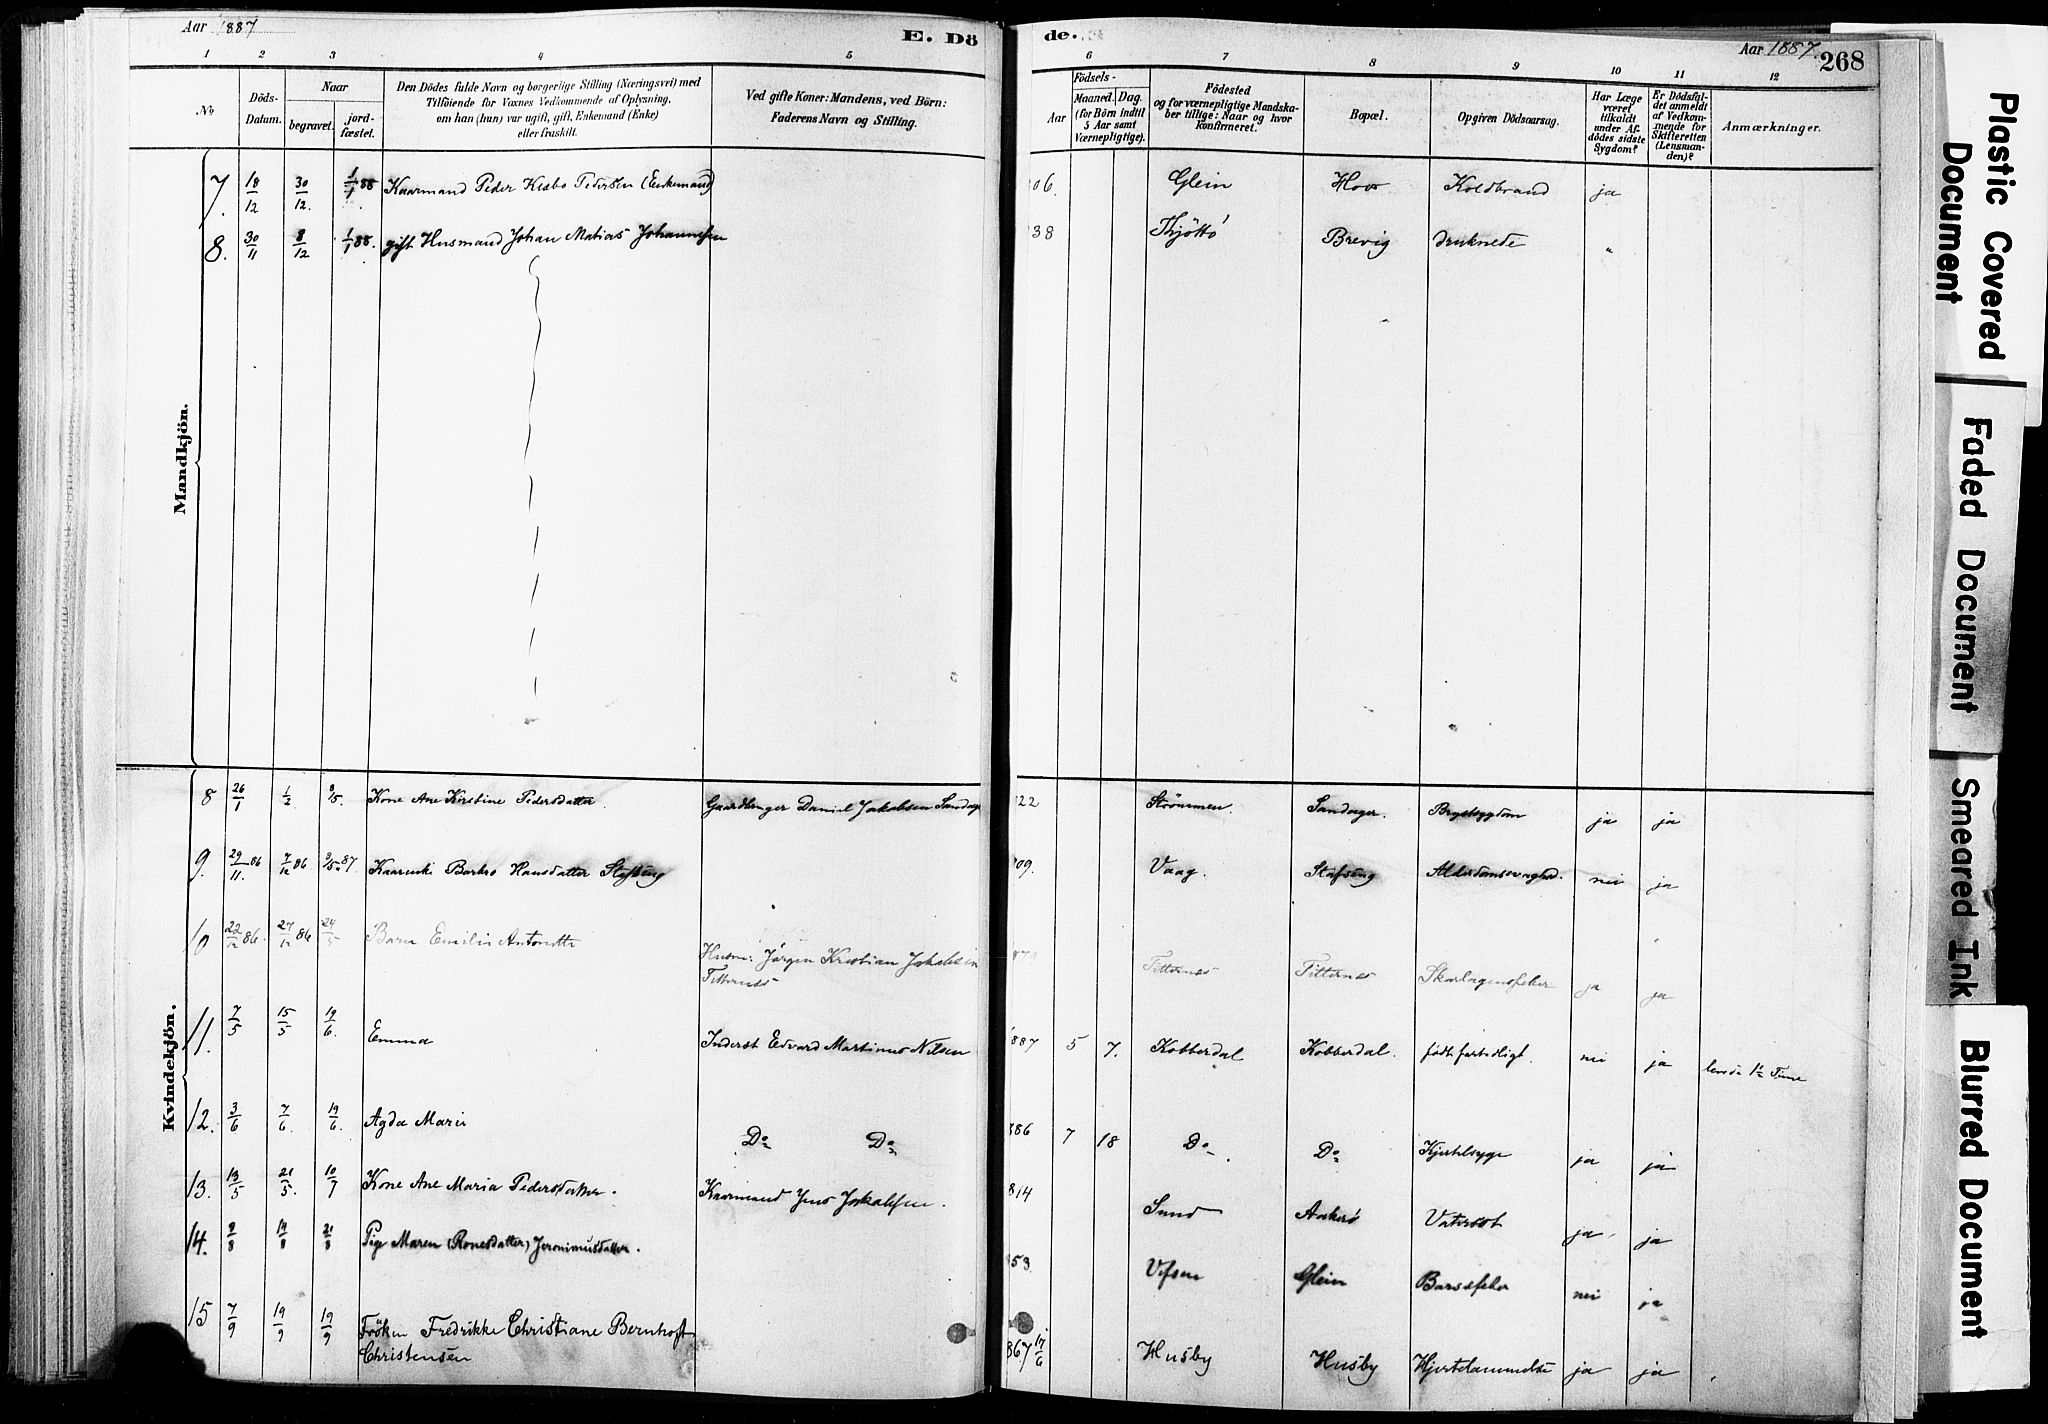 Aar 1887
E. Dö
de.
Aar 1887.
268
1 2 3 4 5 6 7 8 9 10 11 12
No.
Döds-Datum.
Naar
begravet.
jord-fæstet.
Den Dödes fulde Navn og borgerlige Stilling (Næringsvei) med
Tilföiende for Voxnes Vedkommende af Oplysning,
om han (hun) var ugift, gift, Enkemand (Enke)
eller fraskilt.
Ved gifte Koner: Mandens, ved Börn:
Faderens Navn og Stilling.
Födsels-
Aar
Maaned. Dag.
(for Börn indtil
5 Aar samt
Værnepligtige).
Födested
og for værnepligtige Mandska-
ber tillige: Naar og hvor
konfirmeret.
Bopæl.
Opgiven Dödsaarsag.
Har Læge
været
tilkaldt
under Af-
dödes sidste
Sygdom?
Er Dödsfal-
det anmeldt
af Vedkom-
mende for
Skifteretten
(Lensman-
den)?
Anmærkninger.
Mandkjön.
7. 18/12 30/12. 1/1 88 Kaarmand Peder Pedersen (Enkemand) 06. Glein Hov Koldbrand ja
8. 30/11 8/12 1/1 88. gift Husmand Johan Matias Johannesen 38 Thjöttö Brevig druknede "
Kvindekjön.
8 26/1 1/2 8/5. Kone Ane Kirstine Pedersdatter. Gaardbruger Daniel Jakobsen Sandager 22 Strømmen. Sandager. Brystsygdom ja ja
9. 29/11. 86 7/12 86 87 Barbro Hansdatter Stafseng 09. Vaag. Stafseng Alderdomssvaghed. nei ja
10 22/12 86. 27/12 86 24/5 Barn Emilie Antonette Husm: Jörgen Kristian Jakobsen
Titternes Titternes Titternes Skarlagensfeber ja ja
11. 7/5 15/5 19/6. Emma Inderst Edvard Martinus Nilsen 887 5 7. Kobberdal Kobberdal. født fortidligt. nei ja levede 1½ Time
12. 3/6 7/6. 19/6. Agda Marie Do Do 886 7 18 Do Do Kjertelsyge ja ja
13. 13/5 21/5. 10/7 Kone Ane Maria Pedersdatter. Kaarmand Jens Jakobsen. 814 Sund Vatersot ja. ja
14. 9/8 14/8 21/8 Pige Maren (Ronesdatter) Jeronimusdatter. 53. Vefsen Glein Barselfeber nei ja
15 7/9 19/9 19/9 Frøken Fredrikke Christiane Bernhoft
Christensen 867 17/6 Husby Husby Hjertelammelse ja ja
Plastic Covered Document
Faded Document
Smeared Ink
Blurred Document